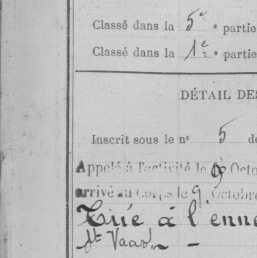 Classé dans la 5e partie
Classé dans la 1e partie
DÉTAIL DES
Inscrit sous le no 5 de
Appelé à l'activité le 9 Octo
arrivé au Corps le 9 Octobre
Tué à l'enne
St Vaast